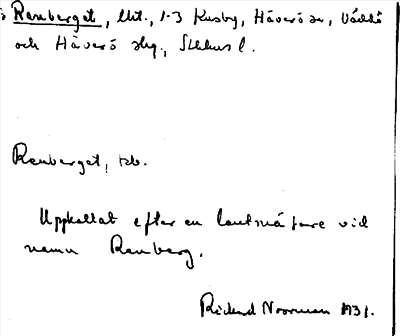 Ramberget, lht., 1-3 Kusby, Häverö sn, Väddö
och Häverö skg., Sthlms l.
Ramberget, tsb.
Uppkallat efter en lantmätare vid
namn Ramberg.
Rickard Norrman 1931.